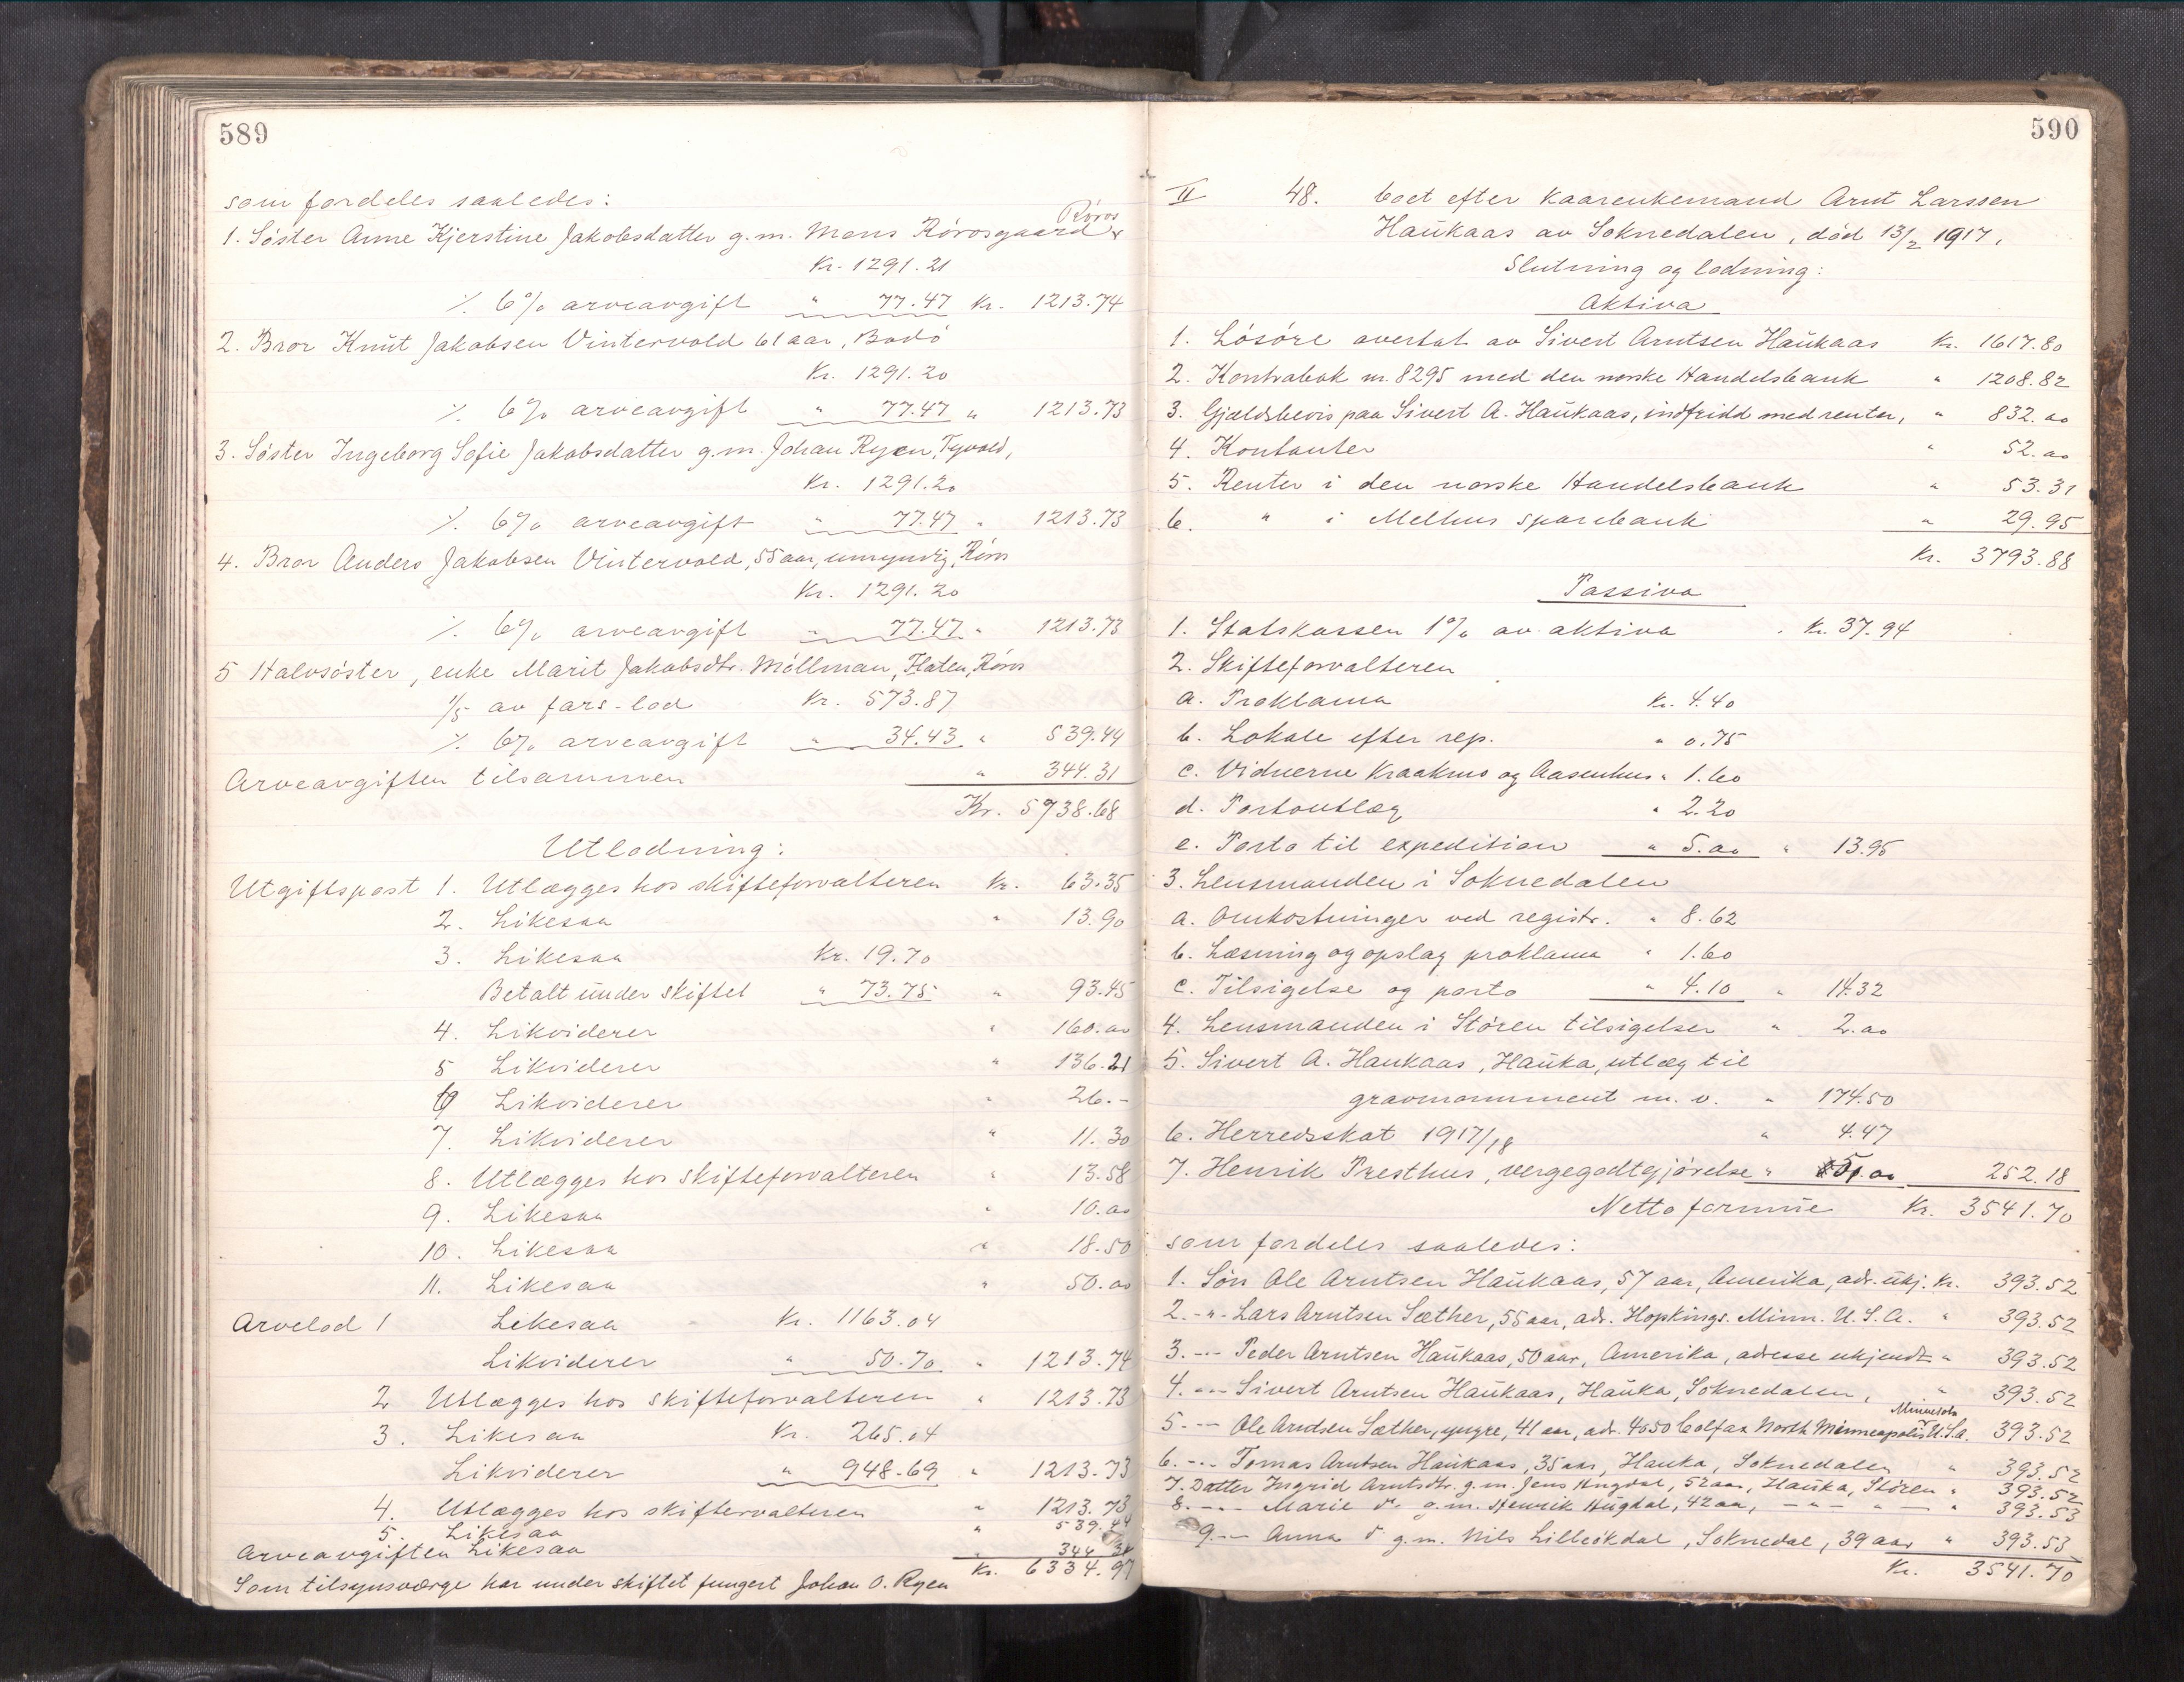 589
som fordeles saaledes:
Röros
1. Söster Anne Kjerstine Jakobsdatter g.m. Mons Rörosgaard
Kr. 1291.21
./. 6% arveavgift " 77.47 Kr. 1213.74
2. Bror Knut Jakobsen Vintervold 61 aar, Bodö
Kr. 1291.20
./. 6% arveavgift " 77.47 " 1213.73
3. Söster Ingeborg Sofie Jakobsdatter g.m. Johan Ryen, Tyvold,
Kr. 1291.20
./. 6% arveavgift " 77.47 " 1213.73
4. Bror Anders Jakobsen Vintervold, 55 aar, umyndig, Röros
Kr. 1291.20
./. 6% arveavgift " 77.47 " 1213.73
5 Halvsöster, enke Marit Jakobsdtr. Möllman, Flaten, Röros
1/5 av fars-lod Kr. 573.87
./. 6% arveavgift " 34.43 " 539.44
Arveavgiften tilsammen " 344.31
Kr. 5738.68
Utlodning:
Utgiftspost 1. Utlægges hos skifteforvalteren Kr. 63.35
2. Likesaa " 13.90
3. Likesaa Kr. 19.70
Betalt under skiftet " 73.75 " 93.45
4. Likviderer " 160.oo
5 Likviderer " 136.21
6 Likviderer " 26.-
7. Likviderer " 11.30
8. Utlægges hos skifteforvalteren " 13.58
9. Likesaa " 10.oo
10. Likesaa " 18.50
11. Likesaa " 50.oo
Arvelod 1 Likesaa Kr. 1163.04
Likviderer " 50.70 " 1213.74
2 Utlægges hos skifteforvalteren " 1213.73
3. Likesaa Kr. 265.04
Likviderer " 948.69 " 1213.73
4. Utlægges hos skiftervalteren " 1213.73
5. Likesaa " 539.44
Arveavgiften Likesaa " 344.31
Kr. 6334.97
Som tilsynsværge har under skiftet fungert Johan O. Ryen
590
II 48. Boet efter kaarenkemand Arnt Larssen
Haukaas av Soknedalen, död 13/2 1917.
Slutning og lodning:
Aktiva
1. Lösöre overtat av Sivert Arntsen Haukaas Kr. 1617.80
2. Kontrabok nr. 8295 med den norske Handelsbank " 1208.82
3. Gjældsbevis paa Sivert A. Haukaas, indfridd med renter, " 832.oo
4. Kontanter " 52.oo
5. Renter i den norske Handelsbank " 53.31
6. " i Melhus sparebank " 29.95
Kr. 3793.88
Passiva
1. Statskassen 1% av aktiva Kr. 37.94
2. Skifteforvalteren
a. Proklama Kr. 4.40
b. Lokale efter rep. " 0.75
c. Vidnerne Kraakmo og Aasenhus " 1.60
d. Portoutlæg " 2.20
e. Porto til expedition " 5.oo " 13.95
3. Lensmanden i Soknedalen
a. Omkostninger ved registr. " 8.62
b. Læsning og opslag proklama " 1.60
c. Tilsigelse og porto " 4.10 " 14.32
4. Lensmanden i Stören tilsigelser " 2.oo
5. Sivert A. Haukaas, Hauka, utlæg til
gravmonument m.v. " 174.50
6. Herredsskat 1917/18 " 4.47
7. Henrik Presthus, vergegodtgjörelse " 5.oo 252.18
Netto formue Kr. 3541.70
som fordeles saaledes:
1. Sön Ole Arntsen Haukaas, 57 aar, Amerika, adr. ukj. Kr. 393.52
2. -"- Lars Arntsen Sæther, 55 aar, adr. Hopkings. Minn. U.S.A. " 393.52
3. -"- Peder Arntsen Haukaas, 50 aar, Amerika, adresse ukjendt " 393.52
4. -"- Sivert Arntsen Haukaas, Hauka, Soknedalen, " 393.52
Minnesota
5. -"- Ole Arntsen Sæther, yngre, 41 aar, adr. 4050 Colfax North Minneapolis U.S.A. 393.52
6. -"- Tomas Arntsen Haukaas, 35 aar, Hauka, Soknedalen " 393.52
7. Datter Ingrid Arntsdtr. g.m. Jens Hugdal, 52 aar, Hauka, Stören " 393.52
8. -"- Marie do g.m. Henrik Hugdal, 42 aar, -"- -"- " 393.53
9. -"- Anna do g.m. Nils Lilleökdal, Soknedal, 39 aar " 393.53
Kr. 3541.70